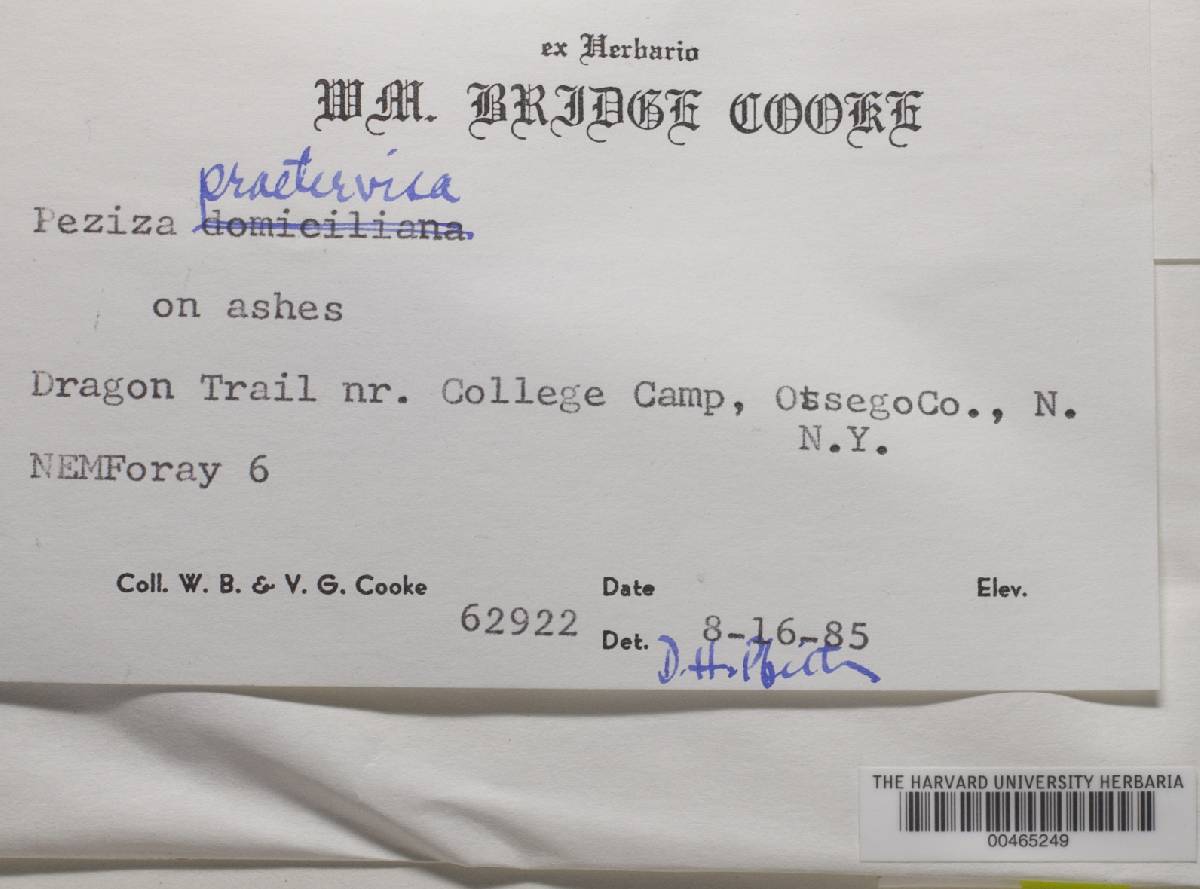 ex Herbario
WM. BRIDGE COOKE
praetervisa
Peziza domiciliana
on ashes
Dragon Trail nr. College Camp, OtsegoCo., N.
N.Y.
NEMForay 6
Coll. W. B. & V. G. Cooke Date Elev.
62922 8-16-85
Det. D.H. Pfister
THE HARVARD UNIVERSITY HERBARIA
00465249